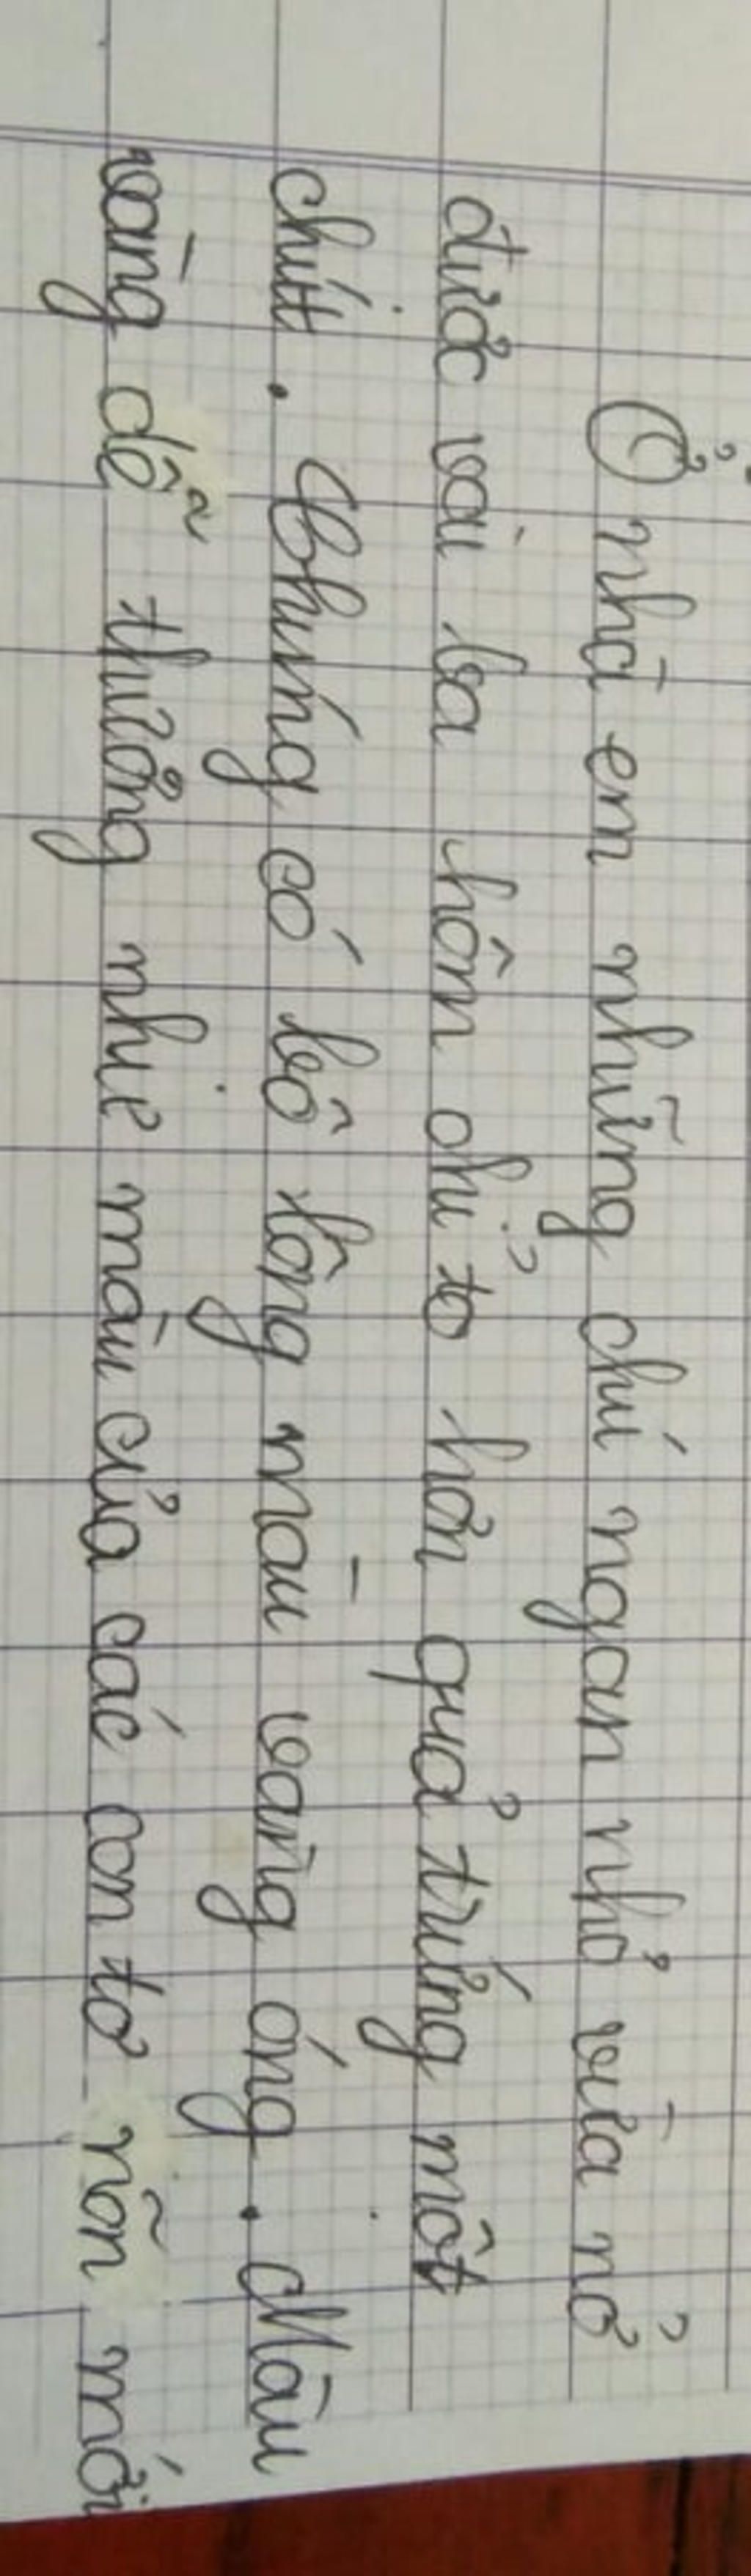 Ở nhà em những chú ngan nhỏ vừa nở
được vài ba hôm chỉ to hơn quả trứng một
chút. Chúng có bộ lông màu vàng óng. Màu
vàng dễ thương như màu của các con tơ nõn mới